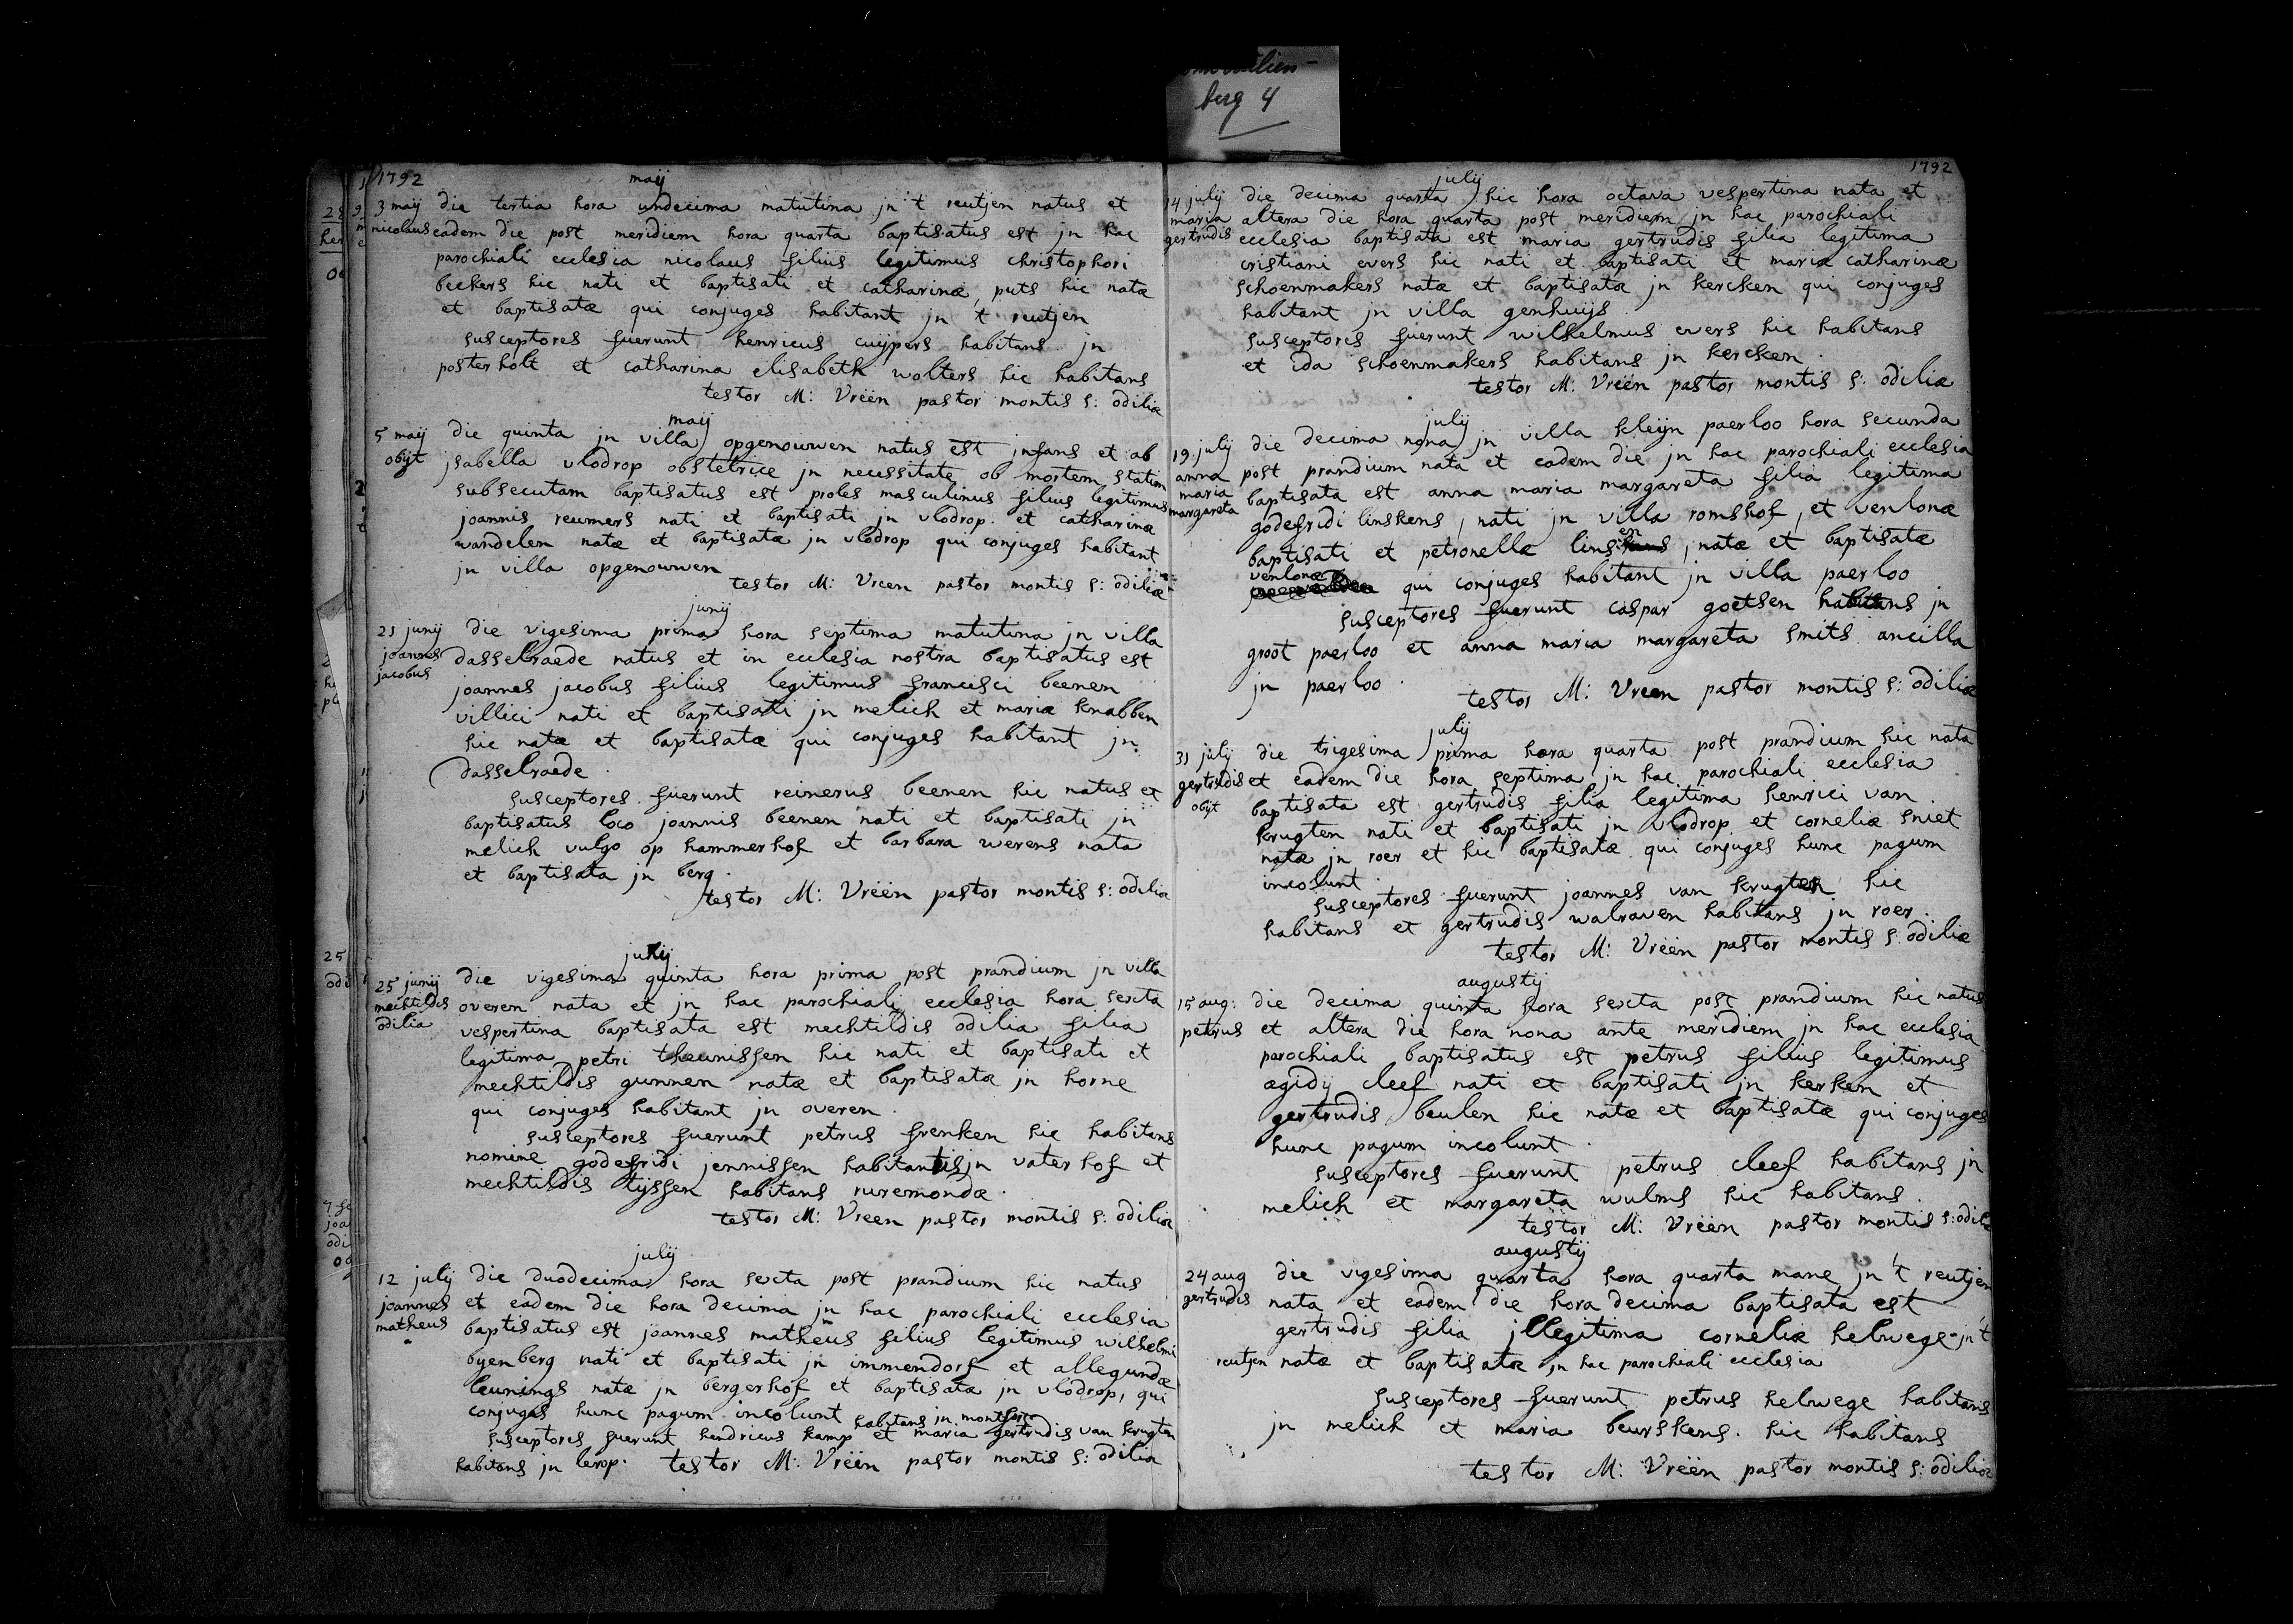 berg 4
1792
maij
3 maij die tertia hora undecima matutina jn 't reutjen natus et
nicolaus eadem die post meridiem hora quarta baptisatus est jn hac
parochiali ecclesia nicolaus filius legitimus christophori
beckers hic nati et baptisati et catharinæ puts hic natæ
et baptisatæ qui conjuges habitant jn 't reutjen
susceptores fuerunt henricus cuijpers habitans jn
posterholt et catharina elisabeth wolters hic habitans
testor M: Vreën pastor montis s: odiliæ
maij
5 maij die quinta jn villa opgenouwen natus est jnfans et ab
obijt jsabella vlodrop obstetrice jn necessitate ob mortem statim
subsecutam baptisatus est proles masculinus filius legitimus
joannis reumers nati et baptisati jn vlodrop et catharinæ
wandelen natæ et baptisatæ jn vlodrop qui conjuges habitant
jn villa opgenouwen
testor M: Vreen pastor montis s: odiliæ
junij
21 junij die vigesima prima hora septima matutina jn villa
joannes dasselraede natus et in ecclesia nostra baptisatus est
jacobus joannes jacobus filius legitimus francisci beenen
villici nati et baptisati jn melich et mariæ knabben
hic natæ et baptisatæ qui conjuges habitant jn
dasselraede.
susceptores fuerunt reinerus beenen hic natus et
baptisatus loco joannis beenen nati et baptisati jn
melich vulgo op hammerhof et barbara werens nata
et baptisata jn berg.
testor M: Vreën pastor montis s: odiliæ
junij
25 junij die vigesima quinta hora prima post prandium jn villa
mechtildis overen nata et jn hac parochialj ecclesia hora sexta
odilia vespertina baptisata est mechtildis odilia filia
legitima petri theunissen hic nati et baptisati et
mechtildis gunnen natæ et baptisatæ jn horne
qui conjuges habitant jn overen.
susceptores fuerunt petrus frenken hic habitans
nomine godefridi jennissen habitantis jn vater hof et
mechtildis tijssen habitans ruremondæ.
testor M: Vreen pastor montis s: odiliæ
julij
12 julij die duodecima hora sexta post prandium hic natus
joannes et eadem die hora decima jn hac parochiali ecclesia
matheus baptisatus est joannes matheus filius legitimus wilhelmi
byenberg nati et baptisati jn immendorf et allegundæ
leunings natæ jn bergerhof et baptisatæ jn vlodrop, qui
conjuges hunc pagum incolunt habitans in montfort
susceptores fuerunt hendricus kamp et maria gertrudis van krugten
habitans jn lerop. testor M: Vreën pastor montis s: odiliæ
1792
julij
14 julij die decima quarta hic hora octava vespertina nata et
maria altera die hora quarta post meridiem jn hac parochiali
gertrudis ecclesia baptisata est maria gertrudis filia legitima
cristiani evers hic nati et baptisati et mariæ catharinæ
schoenmakers natæ et baptisatæ jn kercken qui conjuges
habitant jn villa genhuijs.
susceptores fuerunt wilhelmus evers hic habitans
et ida schoenmakers habitans jn kercken.
testor M: Vreën pastor montis s: odiliæ
julij
19 julij die decima nona jn villa kleijn paerloo hora secunda
anna post prandium nata et eadem die jn hac parochiali ecclesia
maria baptisata est anna maria margareta filia legitima
margareta godefridi linskens, nati jn villa romshof, et venlonæ
baptisati et petronellæ linsen, natæ et baptisatæ
venlonæ qui conjuges habitant jn villa paerloo
susceptores fuerunt caspar goetsen habitans jn
groot paerloo et anna maria margareta smits ancilla
jn paerloo.
testor M: Vreen pastor montis s: odiliæ
julij
31 julij die trigesima prima hora quarta post prandium hic nata
gertrudis et eadem die hora septima jn hac parochiali ecclesia
obijt baptisata est gertrudis filia legitima henrici van
krugten nati et baptisati jn vlodrop et corneliæ sniet
natæ jn roer et hic baptisatæ qui conjuges hunc pagum
incolunt.
susceptores fuerunt joannes van krugten hic
habitans et gertrudis walraven habitans jn roer.
testor M: Vreën pastor montis s: odiliæ
augustij
15 aug: die decima quinta hora sexta post prandium hic natus
petrus et altera die hora nona ante meridiem jn hac ecclesia
parochiali baptisatus est petrus filius legitimus
ægidij cleef nati et baptisati jn kerken et
gertrudis beulen hic natæ et baptisatæ qui conjuges
hunc pagum incolunt.
susceptores fuerunt petrus cleef habitans jn
melich et margareta wulms hic habitans.
testor M: Vreën pastor montis s: odiliæ
augustij
24 aug die vigesima quarta hora quarta mane jn 't reutjen
gertrudis nata et eadem die hora decima baptisata est
gertrudis filia jllegitima corneliæ helwege jn 't
reutjen natæ et baptisatæ jn hac parochiali ecclesia
susceptores fuerunt petrus helwege habitans
jn melich et maria beurskens hic habitans
testor M: Vreën pastor montis s: odiliæ